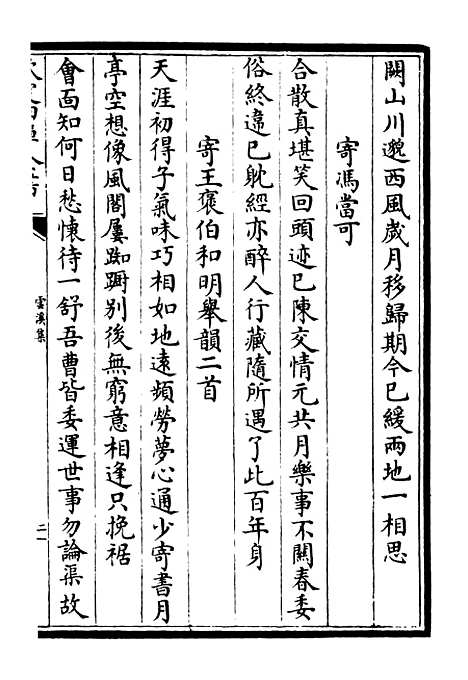 闕山川邈西風歲月移歸期今已緩兩地一相思
寄馮當可
合散真堪笑回頭迹已陳交情元共月樂事不關春委
俗終違已躭經亦醉人行藏隨所遇了此百年身
寄王褒伯和明舉韻二首
天涯初得子氣味巧相如地遠頻勞夢心通少寄書月
亭空想像風閣屢踟蹰别後無窮意相逢只挽裾
會面知何日愁懷待一舒吾曹皆委運世事勿論渠故
雲溪集